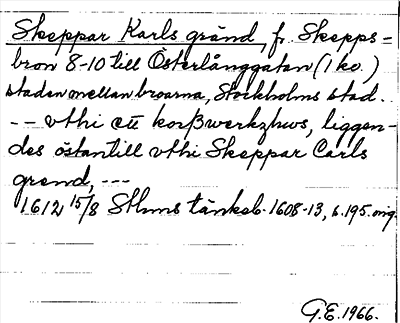 Skeppar Karls gränd, fr. Skepps=
bron 8-10 till Österlånggatan (1 ko.)
staden mellan broarna, Stockholms stad.
-- vthi ett korßwerkzhws, liggen-
des östantill vthi Skeppar Carls
grend, ---
1612 15/8 Sthms tänkeb. 1608-13, s. 195. orig.
G.E. 1966.